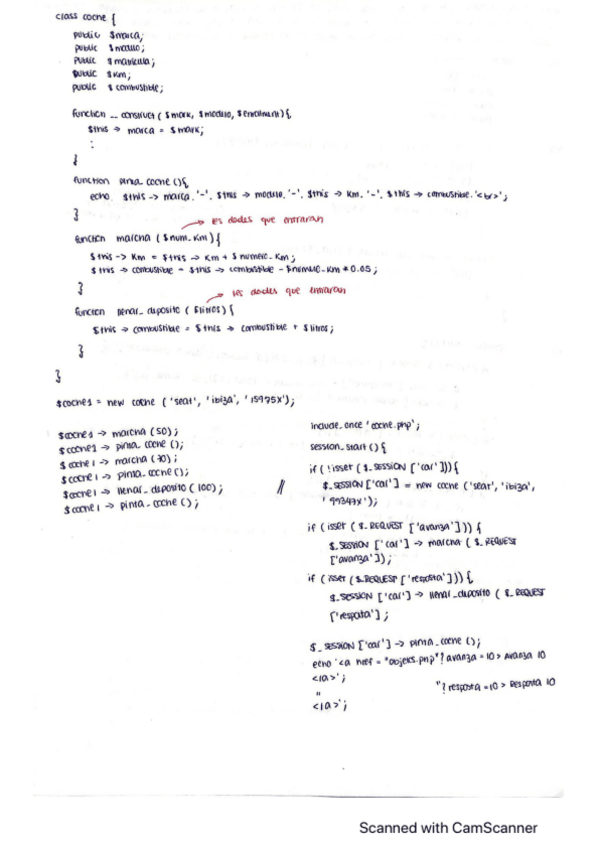 class coche {
public $marca;
public $modulo;
public $matricula;
public $km;
public $combustible;
function __construct ($mark, $modulo, $enrolment) {
$this -> marca = $mark;
:
}
function pinta_coche () {
echo $this -> marca.'-'. $this -> modulo.'-'. $this -> km.'-'. $this -> combustible.'<br>';
}
→ les dades que entraran
function marcha ($num_km) {
$this -> km = $this -> km + $numero_km;
$this -> combustible = $this -> combustible - $numero_km * 0.05;
}
→ les dades que entraran
function llenar_deposito ($litros) {
$this -> combustible = $this -> combustible + $litros;
}
}
$coche1 = new coche ('seat', 'ibiza', '15975X');
$coche1 -> marcha (50);
$coche1 -> pinta_coche ();
$coche1 -> marcha (70);
$coche1 -> pinta_coche ();
$coche1 -> llenar_deposito (100);
$coche1 -> pinta_coche ();
//
include_once 'coche.php';
session_start () {
if (!isset ($_SESSION ['car'])) {
$_SESSION ['car'] = new coche ('seat', 'ibiza',
'99347X');
if (isset ($_REQUEST ['avanza'])) {
$_SESSION ['car'] -> marcha ($_REQUEST
['avanza']);
if (isset ($_REQUEST ['resposta'])) {
$_SESSION ['car'] -> llenar_deposito ($_REQUEST
['resposta'];
$_SESSION ['car'] -> pinta_coche ();
echo '<a href = "objeks.php"?avanza=10> Avanza 10
</a>';
" "?resposta=10> Resposta 10
</a>';
Scanned with CamScanner